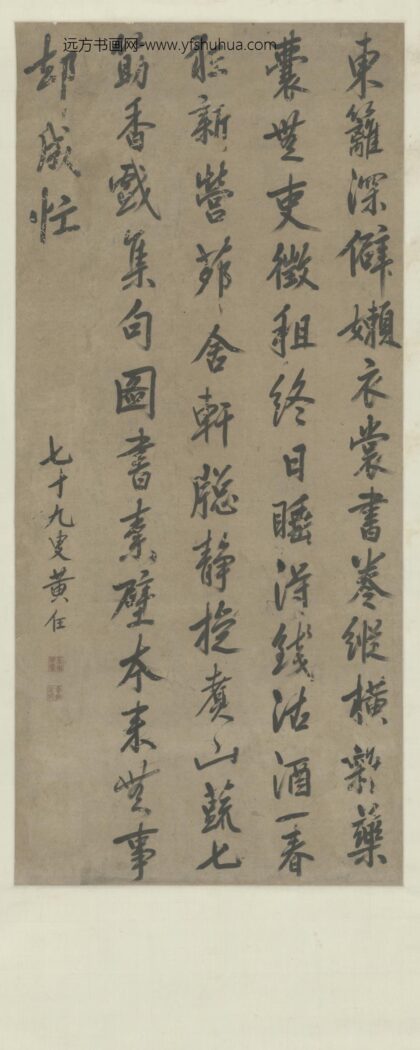 远方书画网-www.yfshuhua.com
東籬深僻嬾衣裳書卷縱橫雜藥
囊無吏徵租終日睡得錢沽酒一春
狂新營茆舍軒牕靜旋煮山蔬匕
筯香戲集句圖書素壁本來無事
却成忙
七十九叟黃任